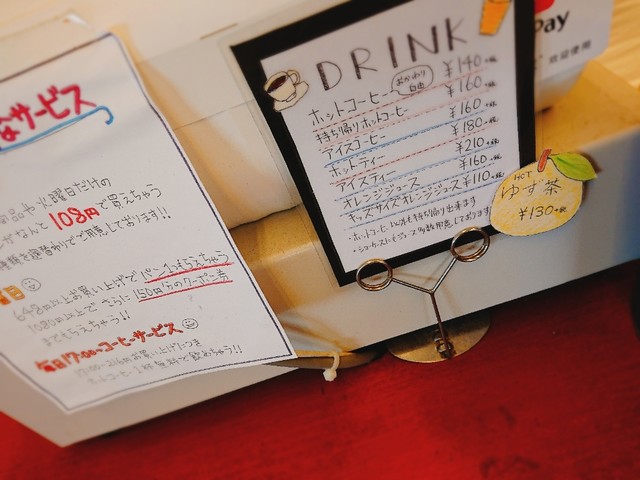 なサービス
火曜日だけの
なんと108円で買えちゃう
種類を週替わりでご用意しております!!
曜日
648円以上お買い上げでパン1コもらえちゃう
1080円以上で さらに150円分のクーポン券
までもらえちゃう!!
毎日17:00~コーヒーサービス
ホットコーヒー1杯無料で飲めちゃう!!
DRINK
ホットコーヒー おかわり自由 ¥140
持ち帰りホットコーヒー ¥160
アイスコーヒー ¥160
ホットティー ¥180
アイスティー ¥210
オレンジジュース ¥160
キッズサイズオレンジジュース ¥110
・ホットコーヒー以外は持ち帰り出来ます
HOT
ゆず茶
¥130+税
Pay
欢迎使用